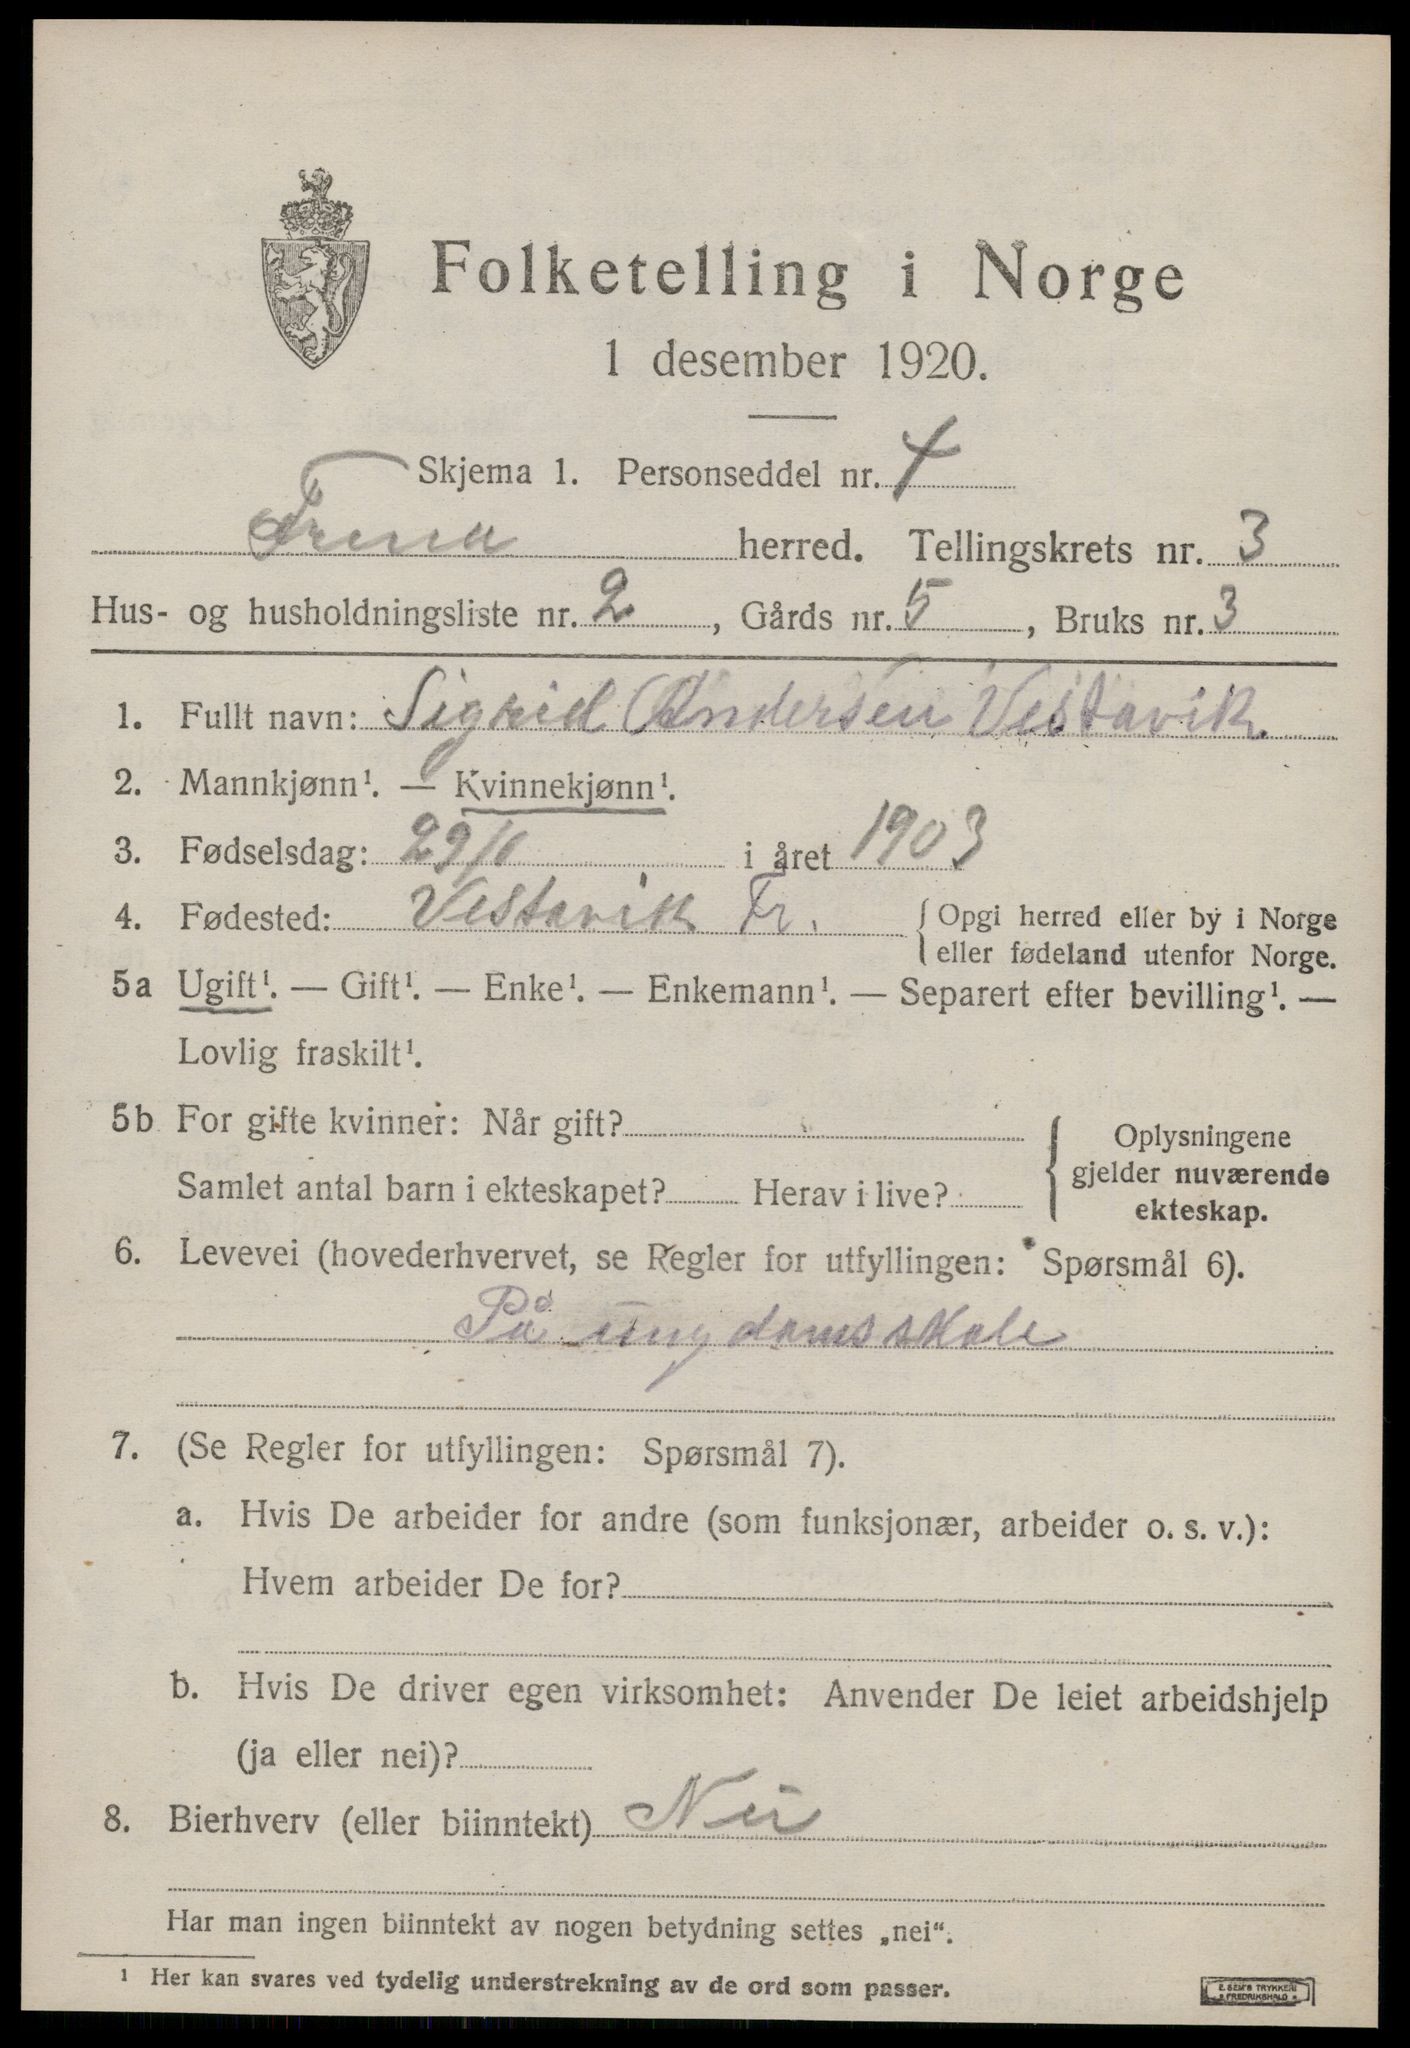 Folketelling i Norge
1 desember 1920.
Skjema 1. Personseddel nr. 4
Fræna herred. Tellingskrets nr. 3
Hus- og husholdningsliste nr. 2, Gårds nr. 5, Bruks nr. 3
1. Fullt navn: Sigrid Andersen Vestavik
2. Mannkjønn¹. — Kvinnekjønn¹.
3. Fødselsdag: 29/6 i året 1903
4. Fødested: Vestavik Fr. { Opgi herred eller by i Norge
eller fødeland utenfor Norge.
5a Ugift¹. — Gift¹. — Enke¹. — Enkemann¹. — Separert efter bevilling¹. —
Lovlig fraskilt¹.
5b For gifte kvinner: Når gift?
Samlet antal barn i ekteskapet? Herav i live?
{ Oplysningene
gjelder nuværende
ekteskap.
6. Levevei (hovederhvervet, se Regler for utfyllingen: Spørsmål 6).
På ungdomsskole
7. (Se Regler for utfyllingen: Spørsmål 7).
a. Hvis De arbeider for andre (som funksjonær, arbeider o. s. v.):
Hvem arbeider De for?
b. Hvis De driver egen virksomhet: Anvender De leiet arbeidshjelp
(ja eller nei)?
8. Bierhverv (eller biinntekt) Nei
Har man ingen biinntekt av nogen betydning settes „nei“.
¹ Her kan svares ved tydelig understrekning av de ord som passer.
E. SEM'S TRYKKERI
FREDRIKSHALD